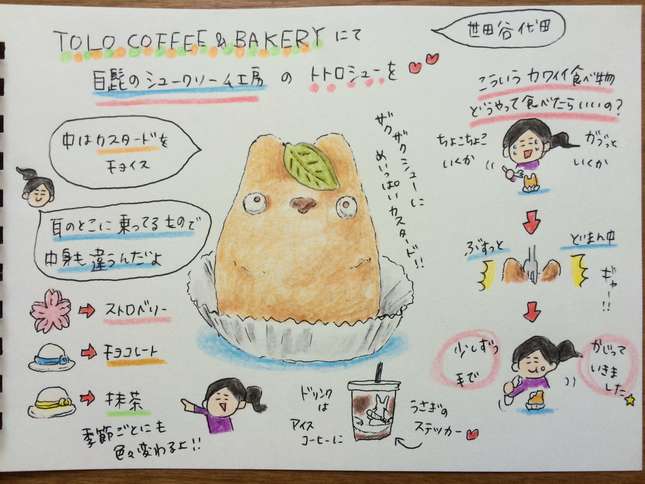 TOLO COFFEE & BAKERY にて
世田谷代田
白髭のシュークリーム工房 の トトロシューを
こういう カワイイ食べ物
どうやって食べたらいいの?
中はカスタードを
チョイス
ザクザクシューに
めいっぱいカスタード!!
ちょこちょこ
いくか
がぶっと
いくか
耳のとこに乗ってるもので
中身も違うんだよ
ぶすっと
どまん中
ギャー!!
ストロベリー
チョコレート
抹茶
季節ごとにも
色々変わるよ!!
ドリンク
は
アイス
コーヒーに
うさぎの
ステッカー
少しずつ
手で
かじって
いきました